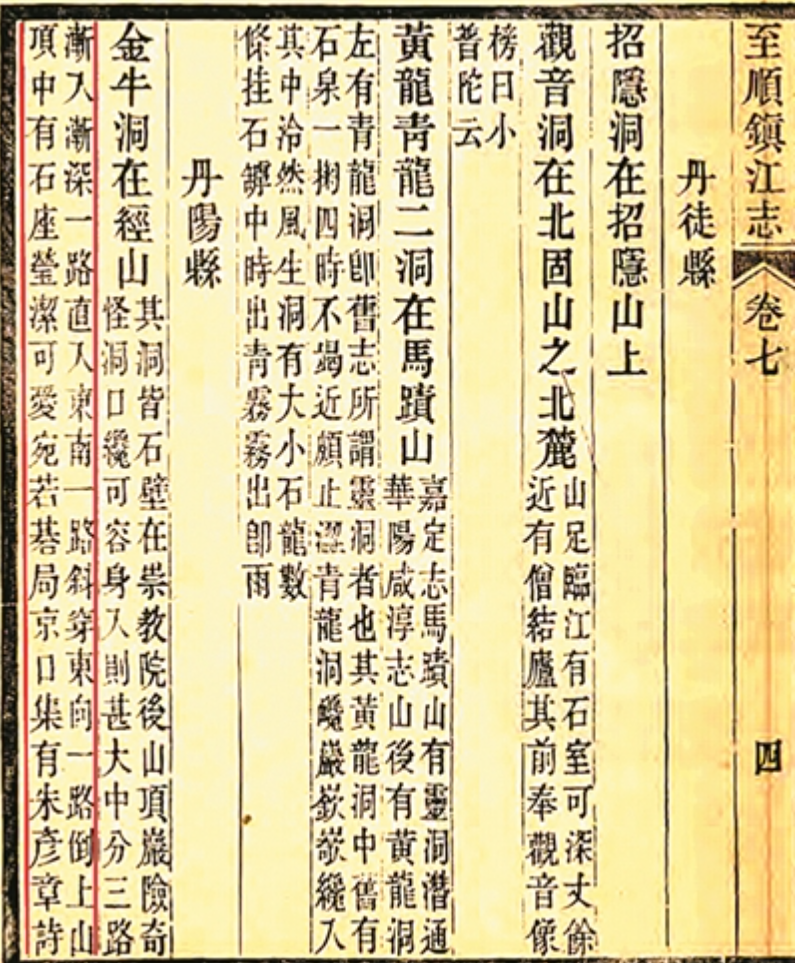 至順鎮江志 卷七 四
丹徒縣
招隱洞在招隱山上
觀音洞在北固山之北麓
山足臨江有石室可深丈餘
近有僧結廬其前奉觀音像
榜曰小
普陀云
黃龍靑龍二洞在馬蹟山
嘉定志馬蹟山有靈洞潛通
華陽咸淳志山後有黃龍洞
左有青龍洞卽舊志所謂靈洞者也其黃龍洞中舊有
石泉一掬四時不竭近頗止澀青龍洞巉巖嶔纔入
其中泠然風生洞有大小石龍數
條挂石罅中時出青霧霧出卽雨
丹陽縣
金牛洞在經山
其洞皆石壁在崇教院後山頂巖險奇
怪洞口纔可容身入則甚大中分三路
漸入漸深一路直入東南一路斜穿東向一路倒上山
項中有石座瑩潔可愛宛若碁局京口集有朱彥章詩